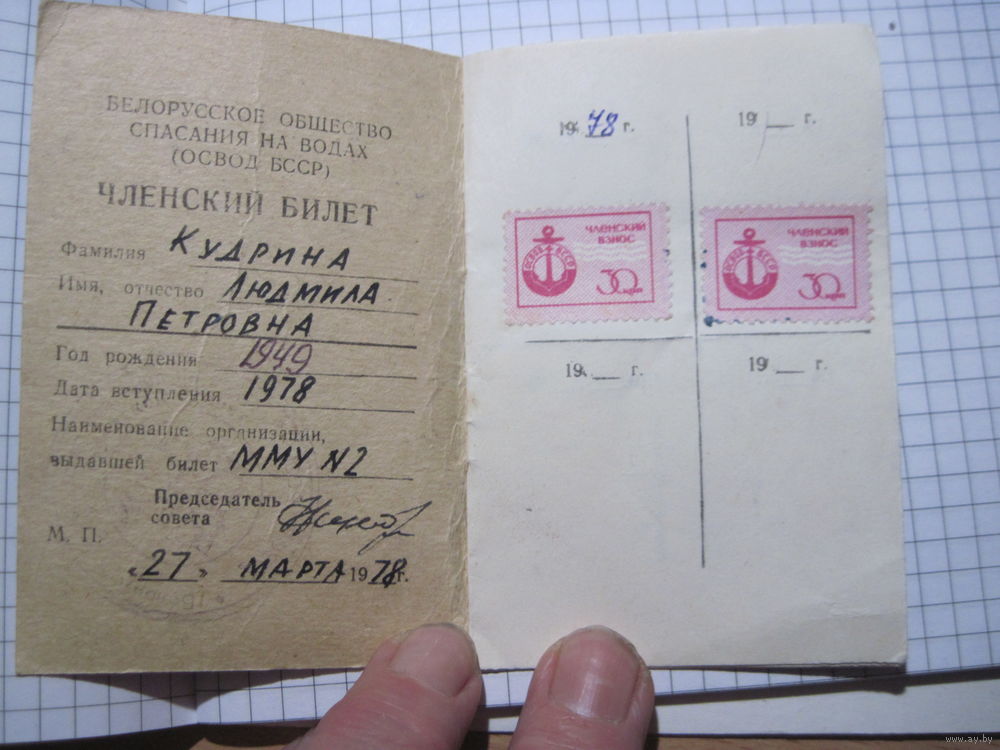 БЕЛОРУССКОЕ ОБЩЕСТВО
СПАСАНИЯ НА ВОДАХ
(ОСВОД БССР)
ЧЛЕНСКИЙ БИЛЕТ
Фамилия КУДРИНА
Имя, отчество ЛЮДМИЛА
ПЕТРОВНА
Год рождения 1949
Дата вступления 1978
Наименование организации,
выдавшей билет ММУ N2
Председатель
совета
М. П.
«27» МАРТА 1978г.
1978 г.
19__ г.
ЧЛЕНСКИЙ
ВЗНОС
ОСВОД БССР
30 коп
ЧЛЕНСКИЙ
ВЗНОС
ОСВОД БССР
30 коп
19__ г.
19__ г.
www.ay.by